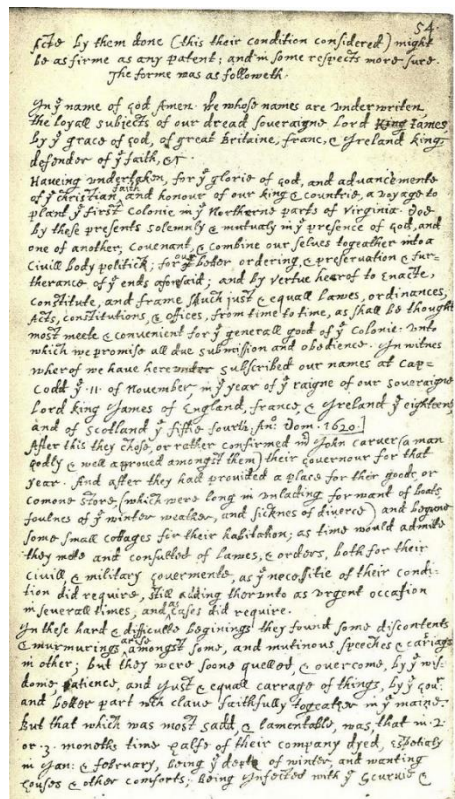 54.
Acts by them done (this their condition considered) might
be as firme as any patent; and in some respects more sure.
The forme was as followeth.
In yͤ name of god Amen. We whose names are underwriten,
the loyall subjects of our dread soveraigne Lord King James
by yͤ grace of god, of great Britaine, franc, & Ireland king,
defender of yͤ faith, &c.
Haveing undertaken, for yͤ glorie of god, and advancemente
of yͤ christian faith and honour of our king & countrie, a voyage to
plant yͤ first colonie in yͤ Northerne parts of Virginia. Doe
by these presents solemnly & mutualy in yͤ presence of god, and
one of another; covenant, & combine our selves togeather into a
Civill body politick; for our better ordering, & preservation & fur=
therance of yͤ ends aforesaid; and by vertue hearof to enacte,
constitute, and frame shuch just & equall Lawes, ordinances,
Acts, constitutions, & offices, from time to time, as shall be thought
most meete & convenient for yͤ generall good of yͤ colonie: unto
which we promise all due submission and obedience. In witnes
wherof we have hereunder subscribed our names at Cap=
Codd yͤ .11. of November, in yͤ year of yͤ raigne of our soveraigne
Lord king James of England, france, & Ireland yͤ eighteenth
and of Scotland yͤ fiftie fourth. Anͦ: Dom. 1620.]
After this they chose, or rather confirmed mͬ John carver (a man
godly & well aproved amongst them) their governour for that
year. And after they had provided a place for their goods, or
comone store, (which were long in unlading for want of boats,
foulnes of yͤ winter weather, and sicknes of diverce) and begune
some small cotages for their habitation; as time would admitte
they mete and consulted of lawes, & orders, both for their
civill & military govermente, as yͤ necessitie of their condi=
tion did require, still adding therunto as urgent occasion
in severall times, and as cases did require.
In these hard & difficulte beginings they found some discontents
& murmurings arise amongst some, and mutinous speeches & cariags
in other; but they were soone quelled, & overcome, by yͤ wis=
dome, patience, and just & equall carrage of things, by yͤ govͬ
and better part wch clave faithfully togeather in yͤ maine.
But that which was most sadd, & lamentable, was, that in .2.
or .3. moneths time halfe of their company dyed, espetialy
in Jan: & february, being yͤ depth of winter, and wanting
houses & other comforts; being infected with yͤ scurvie &